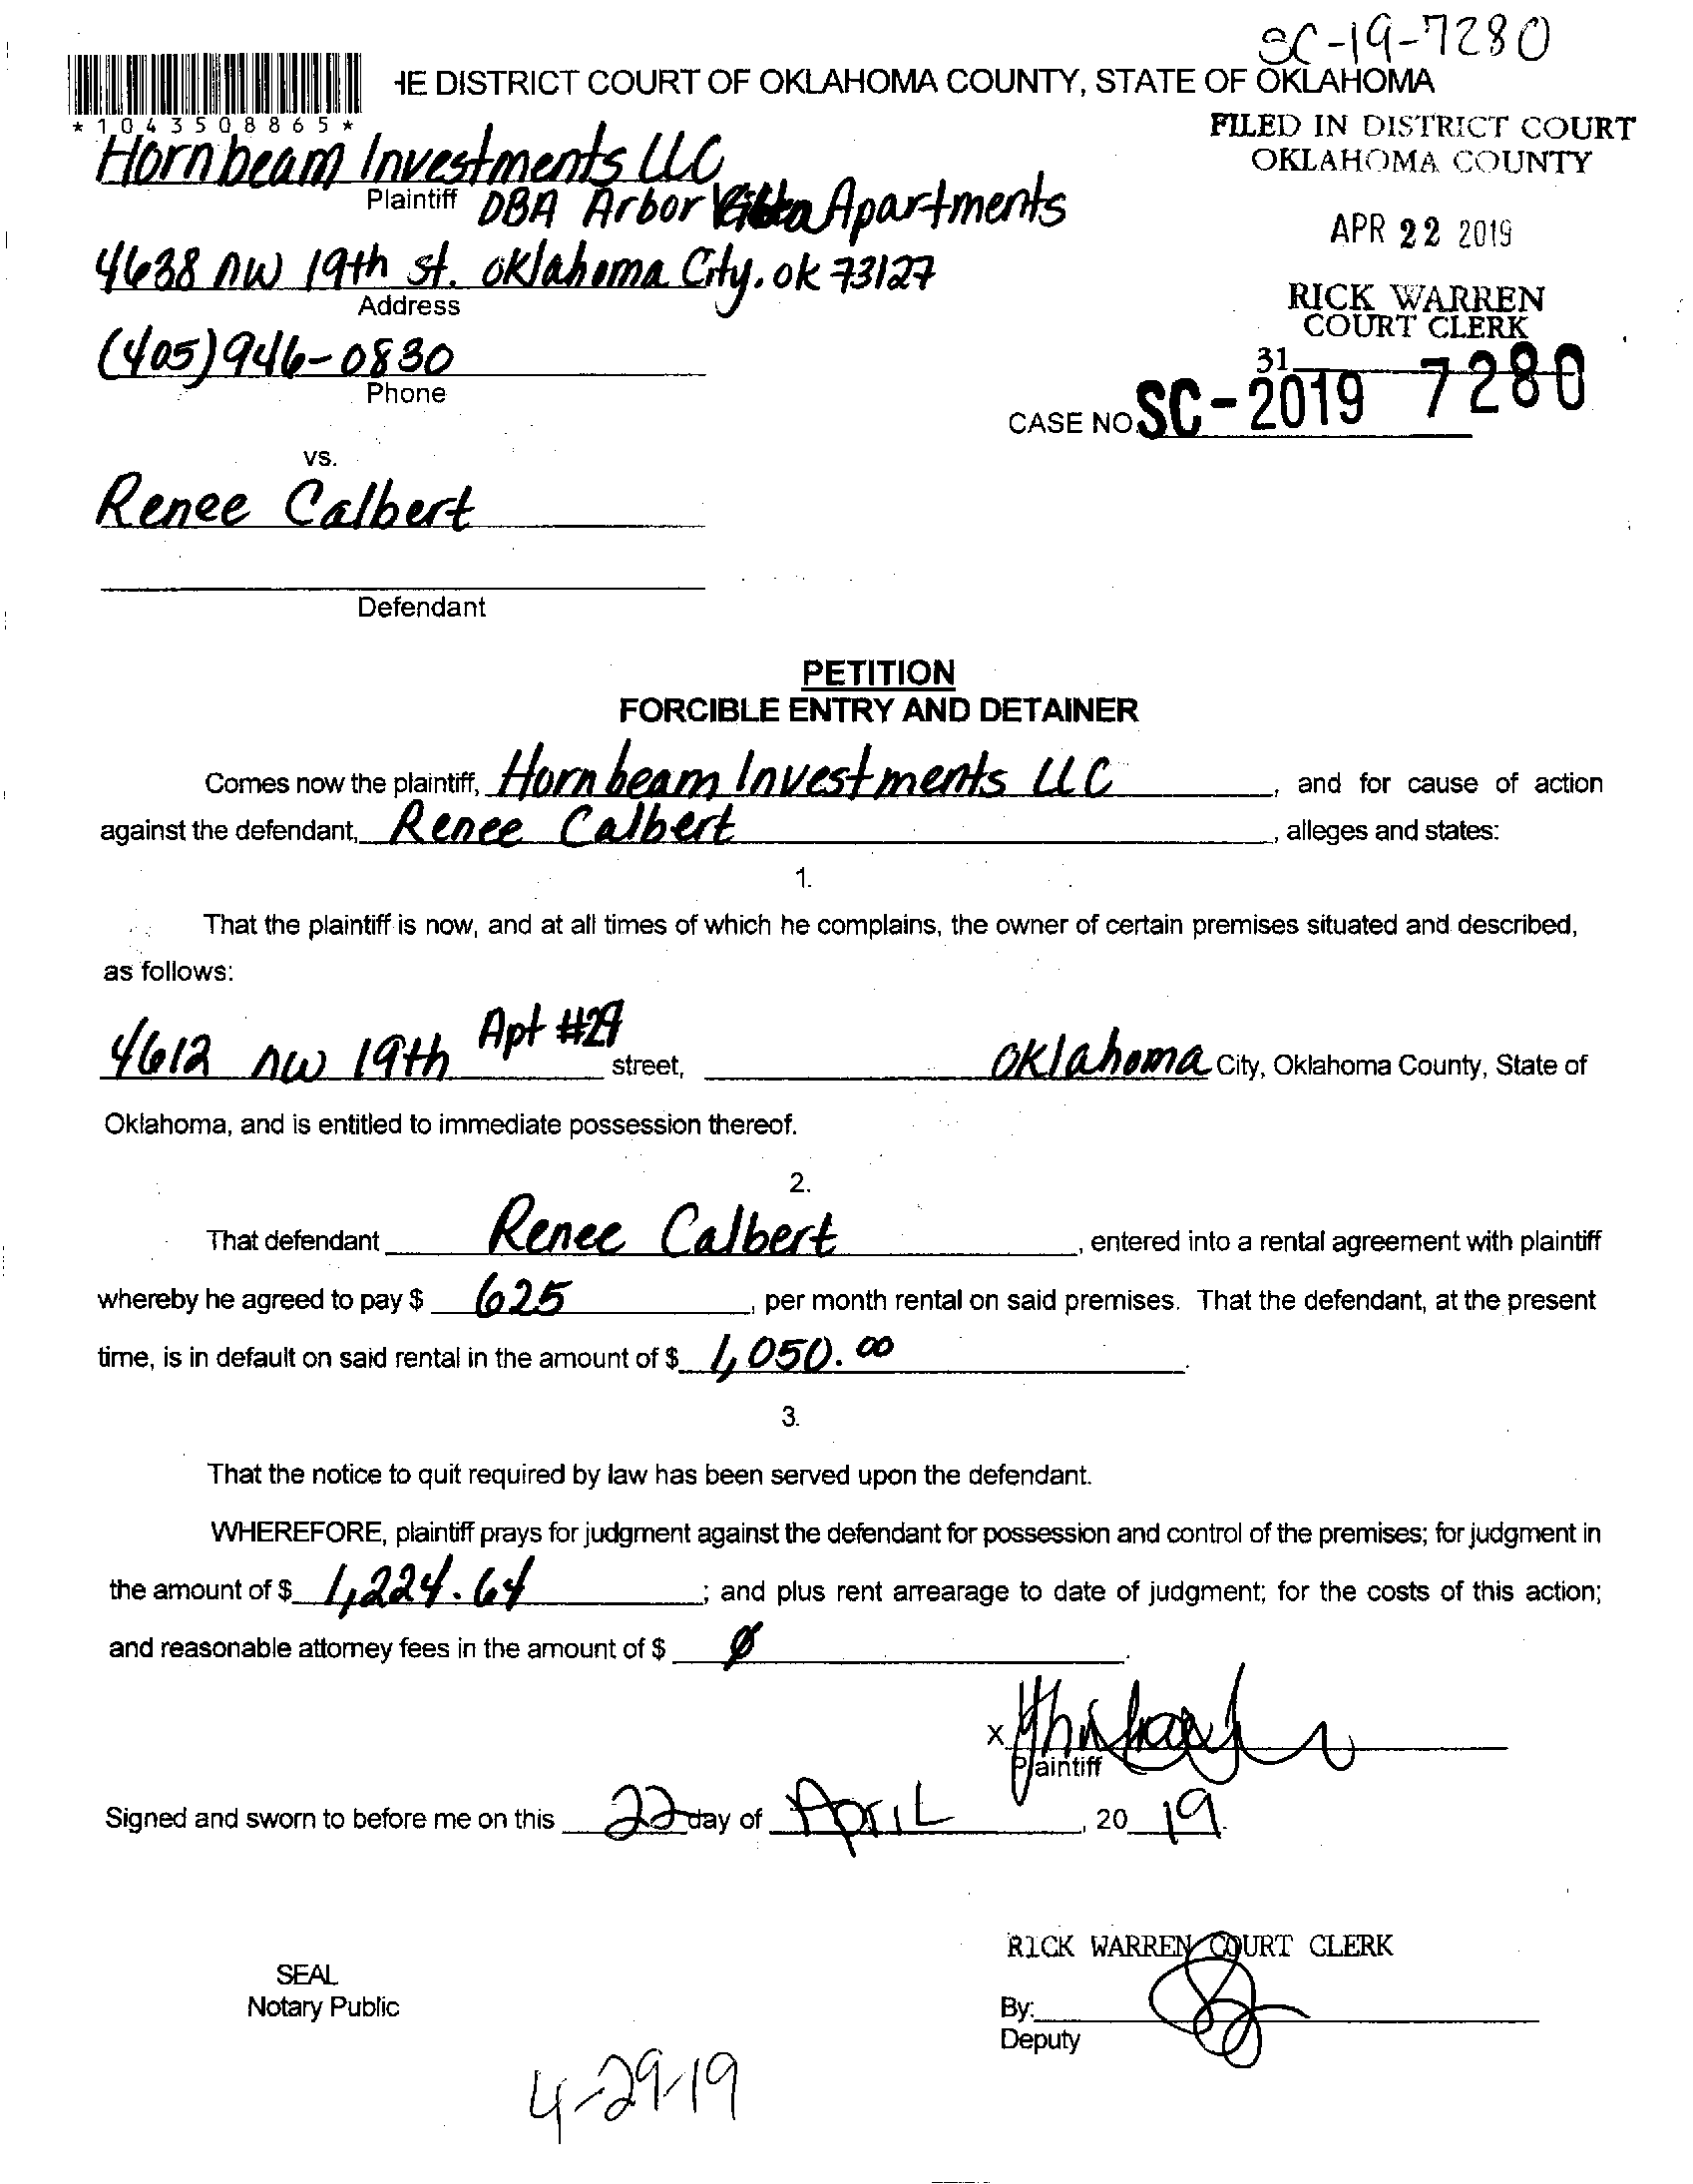 SC-19-7280
HE DISTRICT COURT OF OKLAHOMA COUNTY, STATE OF OKLAHOMA
*1043508865*
FILED IN DISTRICT COURT
OKLAHOMA COUNTY
Hornbeam Investments LLC
Plaintiff DBA Arbor Apartments
APR 22 2019
4638 NW 19th st. Oklahoma City, OK 73127
Address
RICK WARREN
COURT CLERK
(405) 946-0830
Phone
31
CASE NO. SC-2019 7280
vs.
Renee Calbert
Defendant
PETITION
FORCIBLE ENTRY AND DETAINER
Comes now the plaintiff, Hornbeam Investments LLC, and for cause of action
against the defendant, Renee Calbert, alleges and states:
1.
That the plaintiff is now, and at all times of which he complains, the owner of certain premises situated and described,
as follows:
4612 NW 19th Apt #29 street, Oklahoma City, Oklahoma County, State of
Oklahoma, and is entitled to immediate possession thereof.
2.
That defendant Renee Calbert, entered into a rental agreement with plaintiff
whereby he agreed to pay $ 625, per month rental on said premises. That the defendant, at the present
time, is in default on said rental in the amount of $ 1,050.00.
3.
That the notice to quit required by law has been served upon the defendant.
WHEREFORE, plaintiff prays for judgment against the defendant for possession and control of the premises; for judgment in
the amount of $ 1,224.64; and plus rent arrearage to date of judgment; for the costs of this action;
and reasonable attorney fees in the amount of $ Ø.
X
Plaintiff
Signed and sworn to before me on this 22 day of April, 2019.
RICK WARREN COURT CLERK
SEAL
Notary Public
By:
Deputy
4-29-19